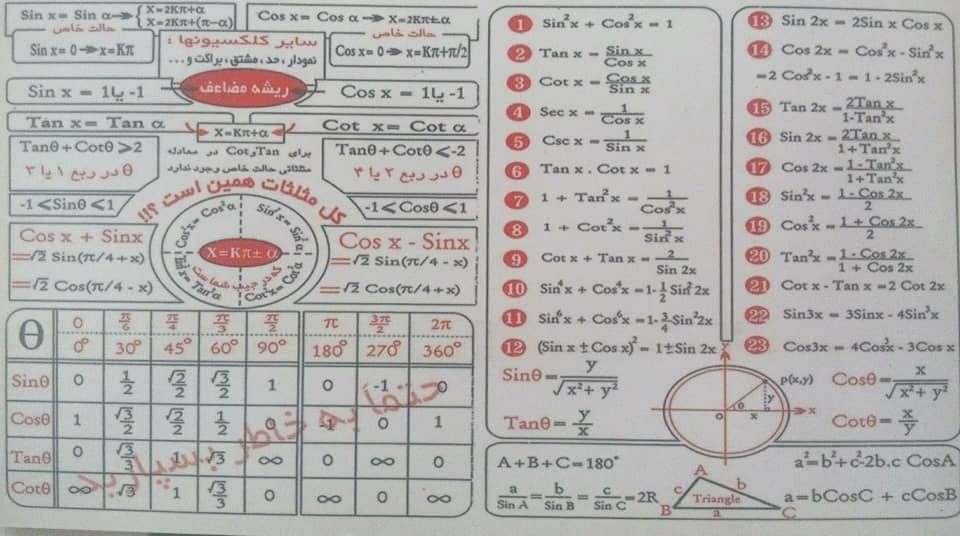 Sin x= Sin α → { X=2Kπ+α
X=2Kπ+(π-α)
حالت خاص
Sin x= 0 → x=Kπ
Sin x = 1یا -1
Tan x= Tan α
سایر کلکسیونها :
نمودار، حد، مشتق، براکت و...
ریشه مضاعف
X=Kπ+α
Cos x= Cos α → X=2Kπ±α
حالت خاص
Cos x= 0 → x=Kπ+π/2
Cos x = 1یا -1
Cot x= Cot α
Tanθ+Cotθ ⩾2
θ در ربع ۱ یا ۳
-1⩽Sinθ⩽1
برای Tan و Cot در معادله
مثلثاتی حالت خاص وجود ندارد
Tanθ+Cotθ⩽-2
θ در ربع ۲ یا ۴
-1⩽Cosθ⩽1
کل مثلثات همین است ؟!!
Cos²x= Cos²α
Sin²x= Sin²α
X=Kπ± α
Tan²x= Tan²α
Cot²x= Cot²α
که در جیب شماست
Cos x + Sinx
=√2 Sin(π/4+x)
=√2 Cos(π/4 - x)
Cos x - Sinx
=√2 Sin(π/4 - x)
=√2 Cos(π/4+x)
θ 0 π/6 π/4 π/3 π/2 π 3π/2 2π
0° 30° 45° 60° 90° 180° 270° 360°
Sinθ 0 1/2 √2/2 √3/2 1 0 -1 0
Cosθ 1 √3/2 √2/2 1/2 0 -1 0 1
Tanθ 0 √3/3 1 √3 ∞ 0 ∞ 0
Cotθ ∞ √3 1 √3/3 0 ∞ 0 ∞
حتماً به خاطر بسپارید
1 Sin²x + Cos²x = 1
2 Tan x = Sin x/Cos x
3 Cot x = Cos x/Sin x
4 Sec x = 1/Cos x
5 Csc x = 1/Sin x
6 Tan x . Cot x = 1
7 1 + Tan²x = 1/Cos²x
8 1 + Cot²x = 1/Sin²x
9 Cot x + Tan x = 2/Sin 2x
10 Sin⁴x + Cos⁴x = 1-1/2 Sin²2x
11 Sin⁶x + Cos⁶x =1-3/4 Sin²2x
12 (Sin x ± Cos x)² = 1±Sin 2x
13 Sin 2x = 2Sin x Cos x
14 Cos 2x = Cos²x - Sin²x
=2 Cos²x - 1 = 1 - 2Sin²x
15 Tan 2x = 2Tan x/1-Tan²x
16 Sin 2x = 2Tan x/1+Tan²x
17 Cos 2x = 1-Tan²x/1+Tan²x
18 Sin²x = 1 - Cos 2x/2
19 Cos²x = 1 + Cos 2x/2
20 Tan²x = 1 - Cos 2x/1 + Cos 2x
21 Cot x - Tan x =2 Cot 2x
22 Sin3x = 3Sinx - 4Sin³x
23 Cos3x = 4Cos³x - 3Cos x
Sinθ= y/√x²+ y²
Tanθ= y/x
y
p(x,y)
y
θ
o x x
Cosθ= x/√x²+ y²
Cotθ= x/y
A+B+C=180°
a/Sin A = b/Sin B = c/Sin C =2R
A
c b
Triangle
B a C
a²=b²+c²-2b.c CosA
a=bCosC + cCosB